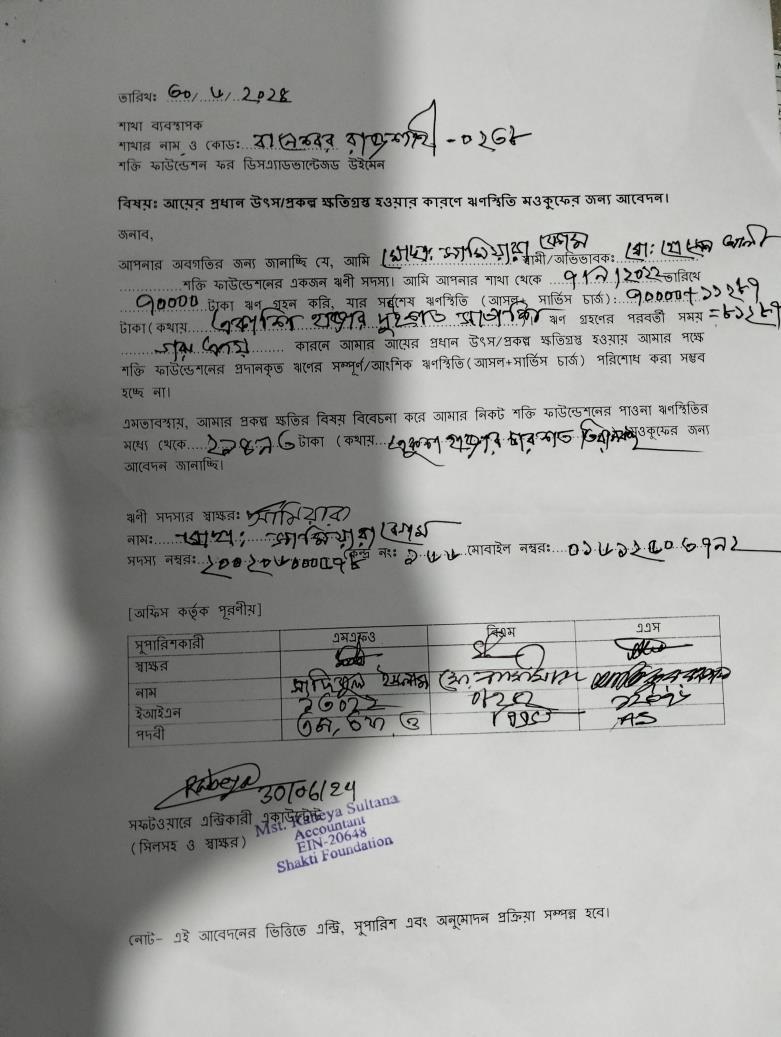 তারিখঃ ৩০/৬/২০২৪
শাখা ব্যবস্থাপক
শাখার নাম ও কোডঃ রাজশাহী - ০২৬৮
শক্তি ফাউন্ডেশন ফর ডিসএ্যাডভান্টেজড উইমেন
বিষয়ঃ আয়ের প্রধান উৎস/প্রকল্প ক্ষতিগ্রস্ত হওয়ার কারণে ঋণস্থিতি মওকুফের জন্য আবেদন।
জনাব,
আপনার অবগতির জন্য জানাচ্ছি যে, আমি মোছাঃ সামিয়ারা বেগম স্বামী/অভিভাবকঃ মোঃ আলী
শক্তি ফাউন্ডেশনের একজন ঋণী সদস্য। আমি আপনার শাখা থেকে ২০২২ তারিখে
৭০০০০ টাকা ঋণ গ্রহন করি, যার সর্বশেষ ঋণস্থিতি (আসল+ সার্ভিস চার্জ)ঃ ৭০০০০+১১২৮৭
টাকা(কথায় একাশি হাজার দুইশত সাতাশি ঋণ গ্রহণের পরবর্তী সময় =৮১২৮৭
কারনে আমার আয়ের প্রধান উৎস/প্রকল্প ক্ষতিগ্রস্ত হওয়ায় আমার পক্ষে
শক্তি ফাউন্ডেশনের প্রদানকৃত ঋণের সম্পূর্ণ/আংশিক ঋণস্থিতি(আসল+সার্ভিস চার্জ) পরিশোধ করা সম্ভব
হচ্ছে না।
এমতাবস্থায়, আমার প্রকল্প ক্ষতির বিষয় বিবেচনা করে আমার নিকট শক্তি ফাউন্ডেশনের পাওনা ঋণস্থিতির
মধ্যে থেকে টাকা (কথায় একুশ হাজার চারশত মওকুফের জন্য
আবেদন জানাচ্ছি।
ঋণী সদস্যর স্বাক্ষরঃ সামিয়ারা
নামঃ মোছাঃ সামিয়ারা বেগম
সদস্য নম্বরঃ কেন্দ্র নংঃ ১৬৬ মোবাইল নম্বরঃ
[অফিস কর্তৃক পূরণীয়]
সুপারিশকারী এমএফও বিএম এএস
স্বাক্ষর
নাম ইসলাম মোঃ
ইআইএন ২৩০২২
পদবী BM AS
Rabeya 30/06/24
সফটওয়ারে এন্ট্রিকারী একাউন্টেন্ট
(সিলসহ ও স্বাক্ষর)
Mst. Rabeya Sultana
Accountant
EIN-20648
Shakti Foundation
নোট- এই আবেদনের ভিত্তিতে এন্ট্রি, সুপারিশ এবং অনুমোদন প্রক্রিয়া সম্পন্ন হবে।